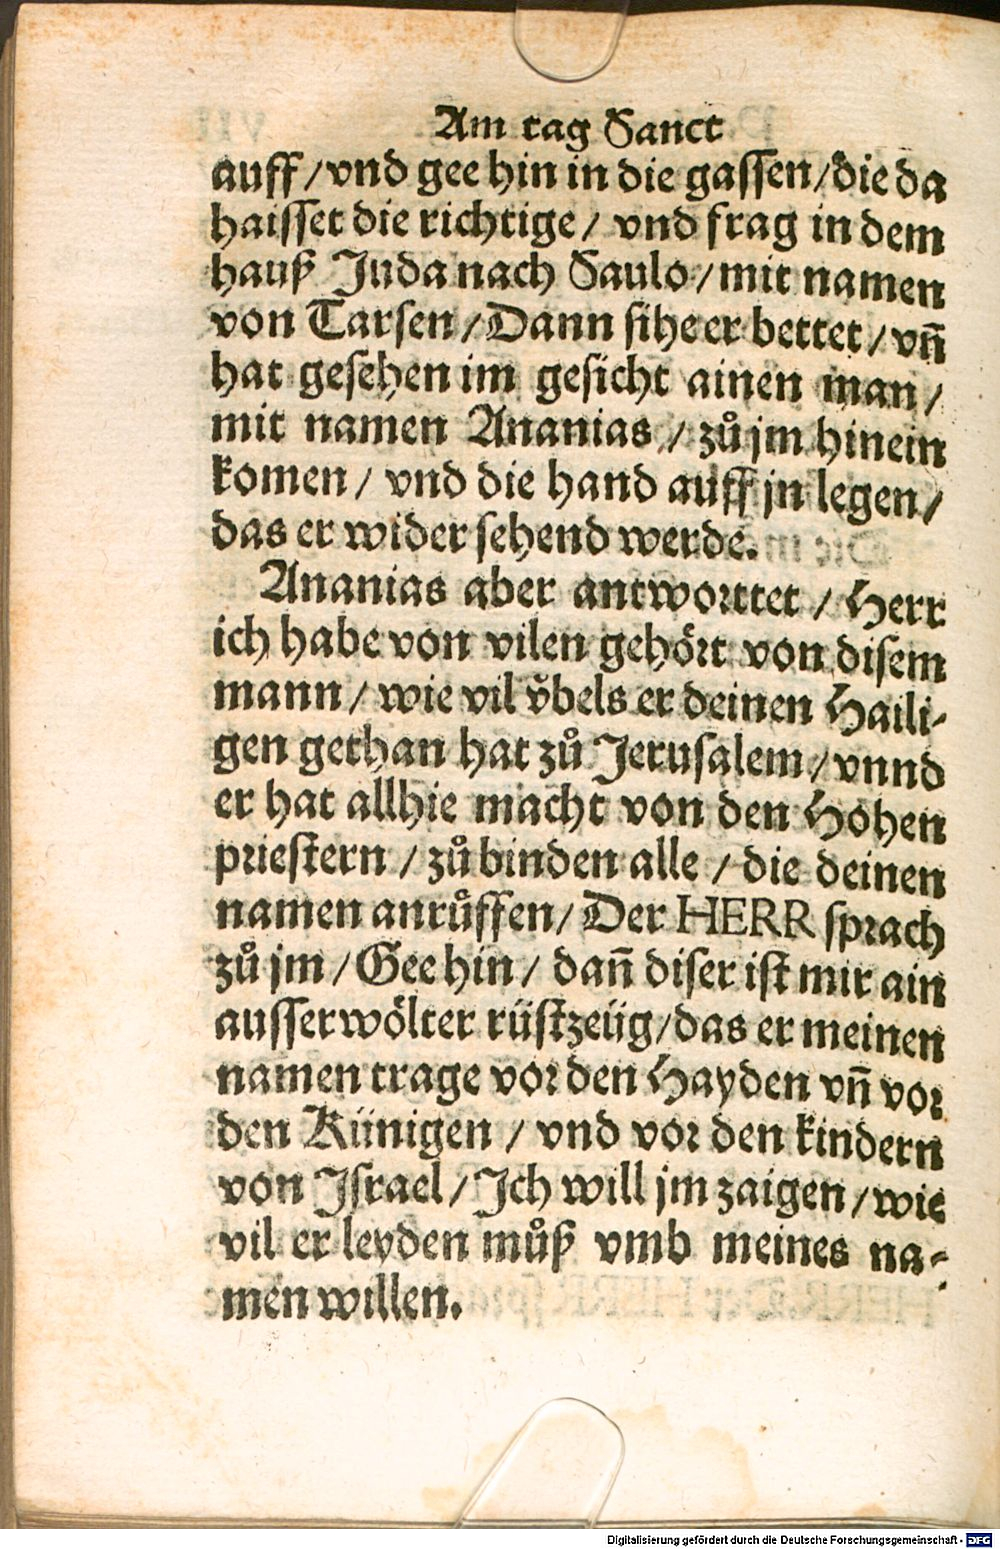 Am tag Sanct
auff / vnd gee hin in die gassen / die da
haisset die richtige / vnd frag in dem
hauß Juda nach Saulo / mit namen
von Tarsen / Dann sihe er bettet / vñ
hat gesehen im gesicht ainen man /
mit namen Ananias / zů jm hinein
komen / vnd die hand auff jn legen /
das er wider sehend werde.
Ananias aber antworttet / Herr
ich habe von vilen gehört von disem
mann / wie vil v̌bels er deinen Haili-
gen gethan hat zů Jerusalem / vnnd
er hat allhie macht von den Hohen
priestern / zů binden alle / die deinen
namen anrůffen / Der HERR sprach
zů jm / Gee hin / dañ diser ist mir ain
ausserwölter rüstzeüg / das er meinen
namen trage vor den Hayden vñ vor
den Künigen / vnd vor den kindern
von Israel / Ich will jm zaigen / wie
vil er leyden můß vmb meines na-
men willen.
Digitalisierung gefördert durch die Deutsche Forschungsgemeinschaft - DFG